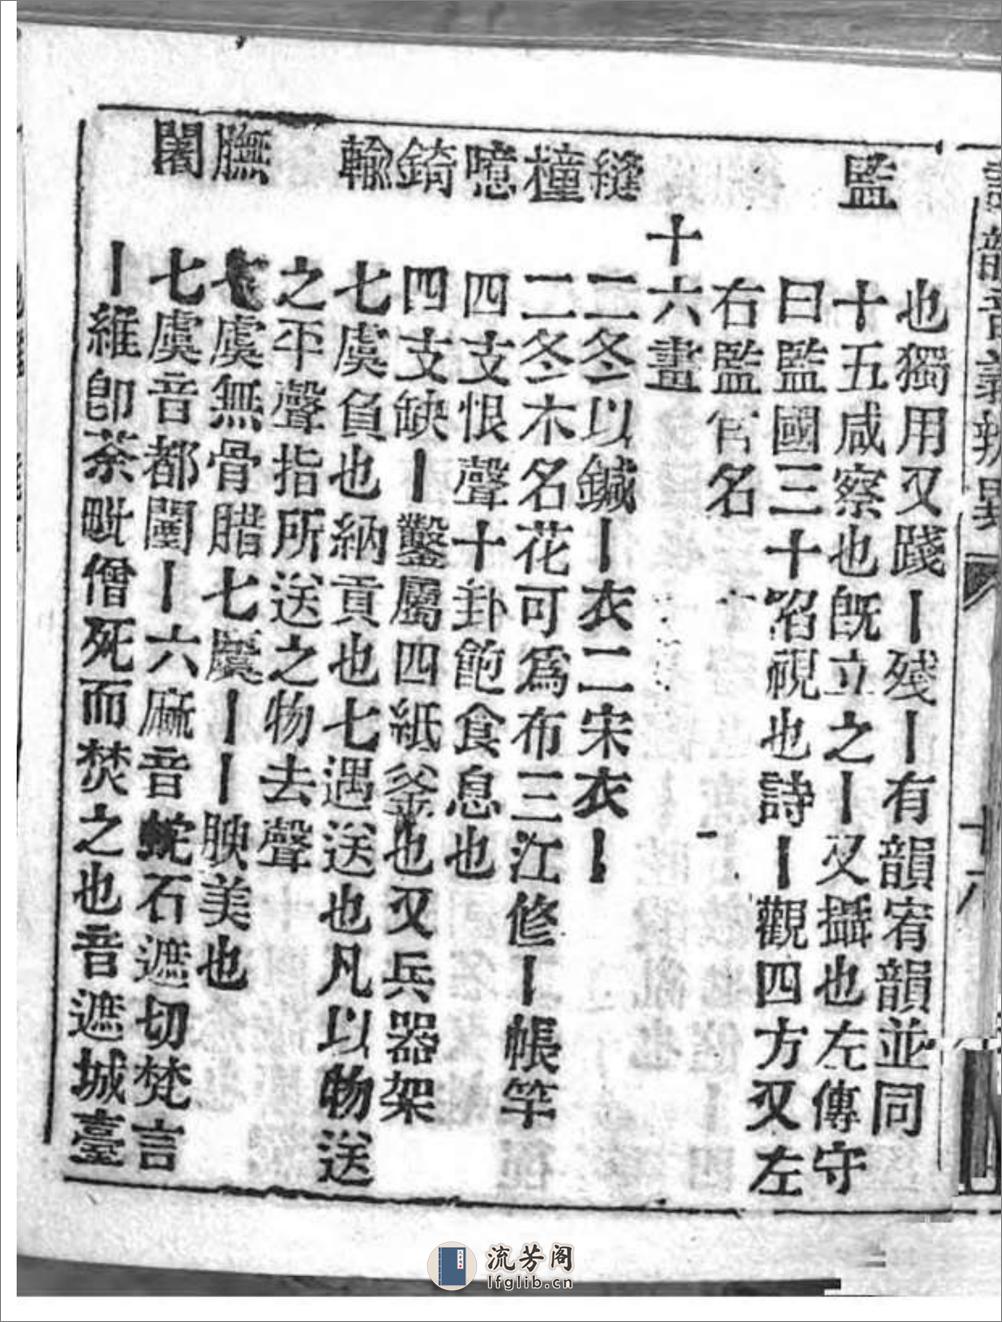 也獨用又踐丨殘丨有韻宥韻並同
監
十五咸察也旣立之丨又攝也左傳守
曰監國三十陷視也詩丨觀四方又左
右監官名
十六畫
縫
二冬以鍼丨衣二宋衣丨
橦
二冬木名花可爲布三江修丨帳竿
噫
四支恨聲十卦飽食息也
錡
四支缺丨鑿屬四紙釜也又兵器架
輸
七虞負也納貢也七遇送也凡以物送
之平聲指所送之物去聲
膴
七虞無骨腊七麌丨丨腴美也
闍
七虞音都闉丨六麻音蛇石遮切梵言
丨維卽荼毗僧死而焚之也音遮城臺
韻音義辨異
流芳阁
lfglib.cn